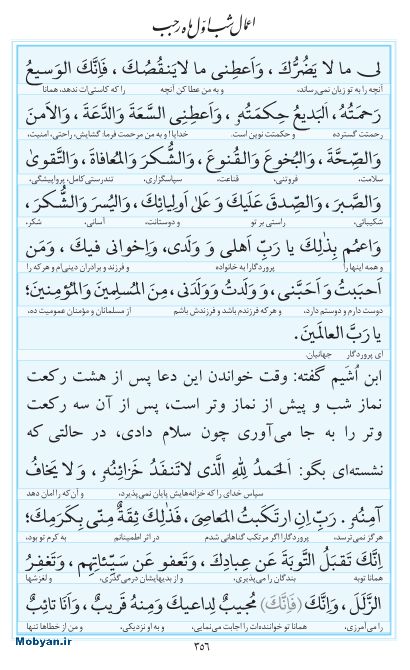 اعمال شب اوّل ماه رجب
لی ما لا یَضُرُّكَ ، وَاَعطِنی ما لایَنقُصُكَ ، فَاِنَّكَ الوَسیعُ
آنچه را به تو زیان نمی‌رساند، و به من عطا کن آنچه را که کاستی‌ات ندهد، همانا
رَحمَتُهُ ، اَلبَدیعُ حِکمَتُهُ ، وَاَعطِنِی السَّعَةَ وَالدَّعَةَ ، وَالاَمنَ
رحمتت گسترده و حکمتت نوین است. خدایا! و به من مرحمت فرما: گشایش، راحتی، امنیت،
وَالصِّحَّةَ ، وَالبُخوعَ وَالقُنوعَ ، وَالشُّکرَ وَالمُعافاةَ ، وَالتَّقویٰ
سلامت، فروتنی، قناعت، سپاسگزاری، تندرستی کامل، پرواپیشگی،
وَالصَّبرَ ، وَالصِّدقَ عَلَیكَ وَ عَلیٰ اَولِیائِكَ ، وَالیُسرَ وَالشُّکرَ ،
شکیبائی، راستی بر تو و دوستانت، آسانی، شکر،
وَاعمُم بِذٰلِكَ یا رَبِّ اَهلی وَ وَلَدی، وَاِخوانی فیكَ ، وَمَن
و همه اینها را پروردگارا به خانواده و فرزند و برادران دینی‌ام و هر که را
اَحبَبتُ وَ اَحَبَّنی ، وَ وَلَدتُ وَوَلَدَنی ، مِنَ المُسلِمینَ وَالمُؤمِنینَ؛
دوست دارم و دوستم دارد، و هر که فرزندم باشد و فرزندش باشم از مسلمانان و مؤمنان عمومیت ده،
یا رَبَّ العالَمینَ.
ای پروردگار جهانیان.
ابن اُشَیم گفته: وقت خواندن این دعا پس از هشت رکعت
نماز شب و پیش از نماز وتر است، پس از آن سه رکعت
وتر را به جا می‌آوری چون سلام دادی، در حالتی که
نشسته‌ای بگو: اَلحَمدُ لِلّٰهِ الَّذی لاتَنفَدُ خَزائِنُهُ ، وَ لا یَخافُ
سپاس خدای را که خزانه‌هایش پایان نمی‌پذیرد، و آن‌که را امان دهد
آمِنُهُ . رَبِّ اِنِ ارتَکَبتُ المَعاصِیَ ، فَذٰلِكَ ثِقَةٌ مِنّی بِکَرَمِكَ؛
هرگز نمی‌ترسد، پروردگارا اگر مرتکب گناهانی شدم در اثر اطمینانم به کرم تو بود،
اِنَّكَ تَقبَلُ التَّوبَةَ عَن عِبادِكَ، وَتَعفو عَن سَیِّئاتِهِم ، وَتَغفِرُ
همانا توبه بندگان را می‌پذیری، و از بدیهایشان درمی‌گذری، و لغزشها
الزَّلَلَ ، وَاِنَّكَ (فَاِنَّكَ) مُجیبٌ لِداعیكَ وَمِنهُ قَریبٌ ، وَاَنَا تائِبٌ
را می‌آمرزی، همانا تو خواننده‌ات را اجابت می‌نمایی، و به او نزدیکی، و من از خطاها تنها
۳۵۶
Mobyan.ir